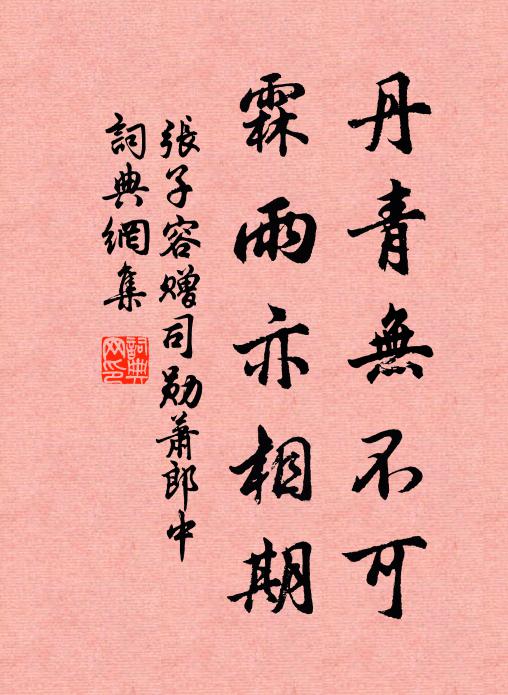 丹青無不可
霖雨亦相期
張子容贈司勛蕭郎中
詞典網集
詞典網印